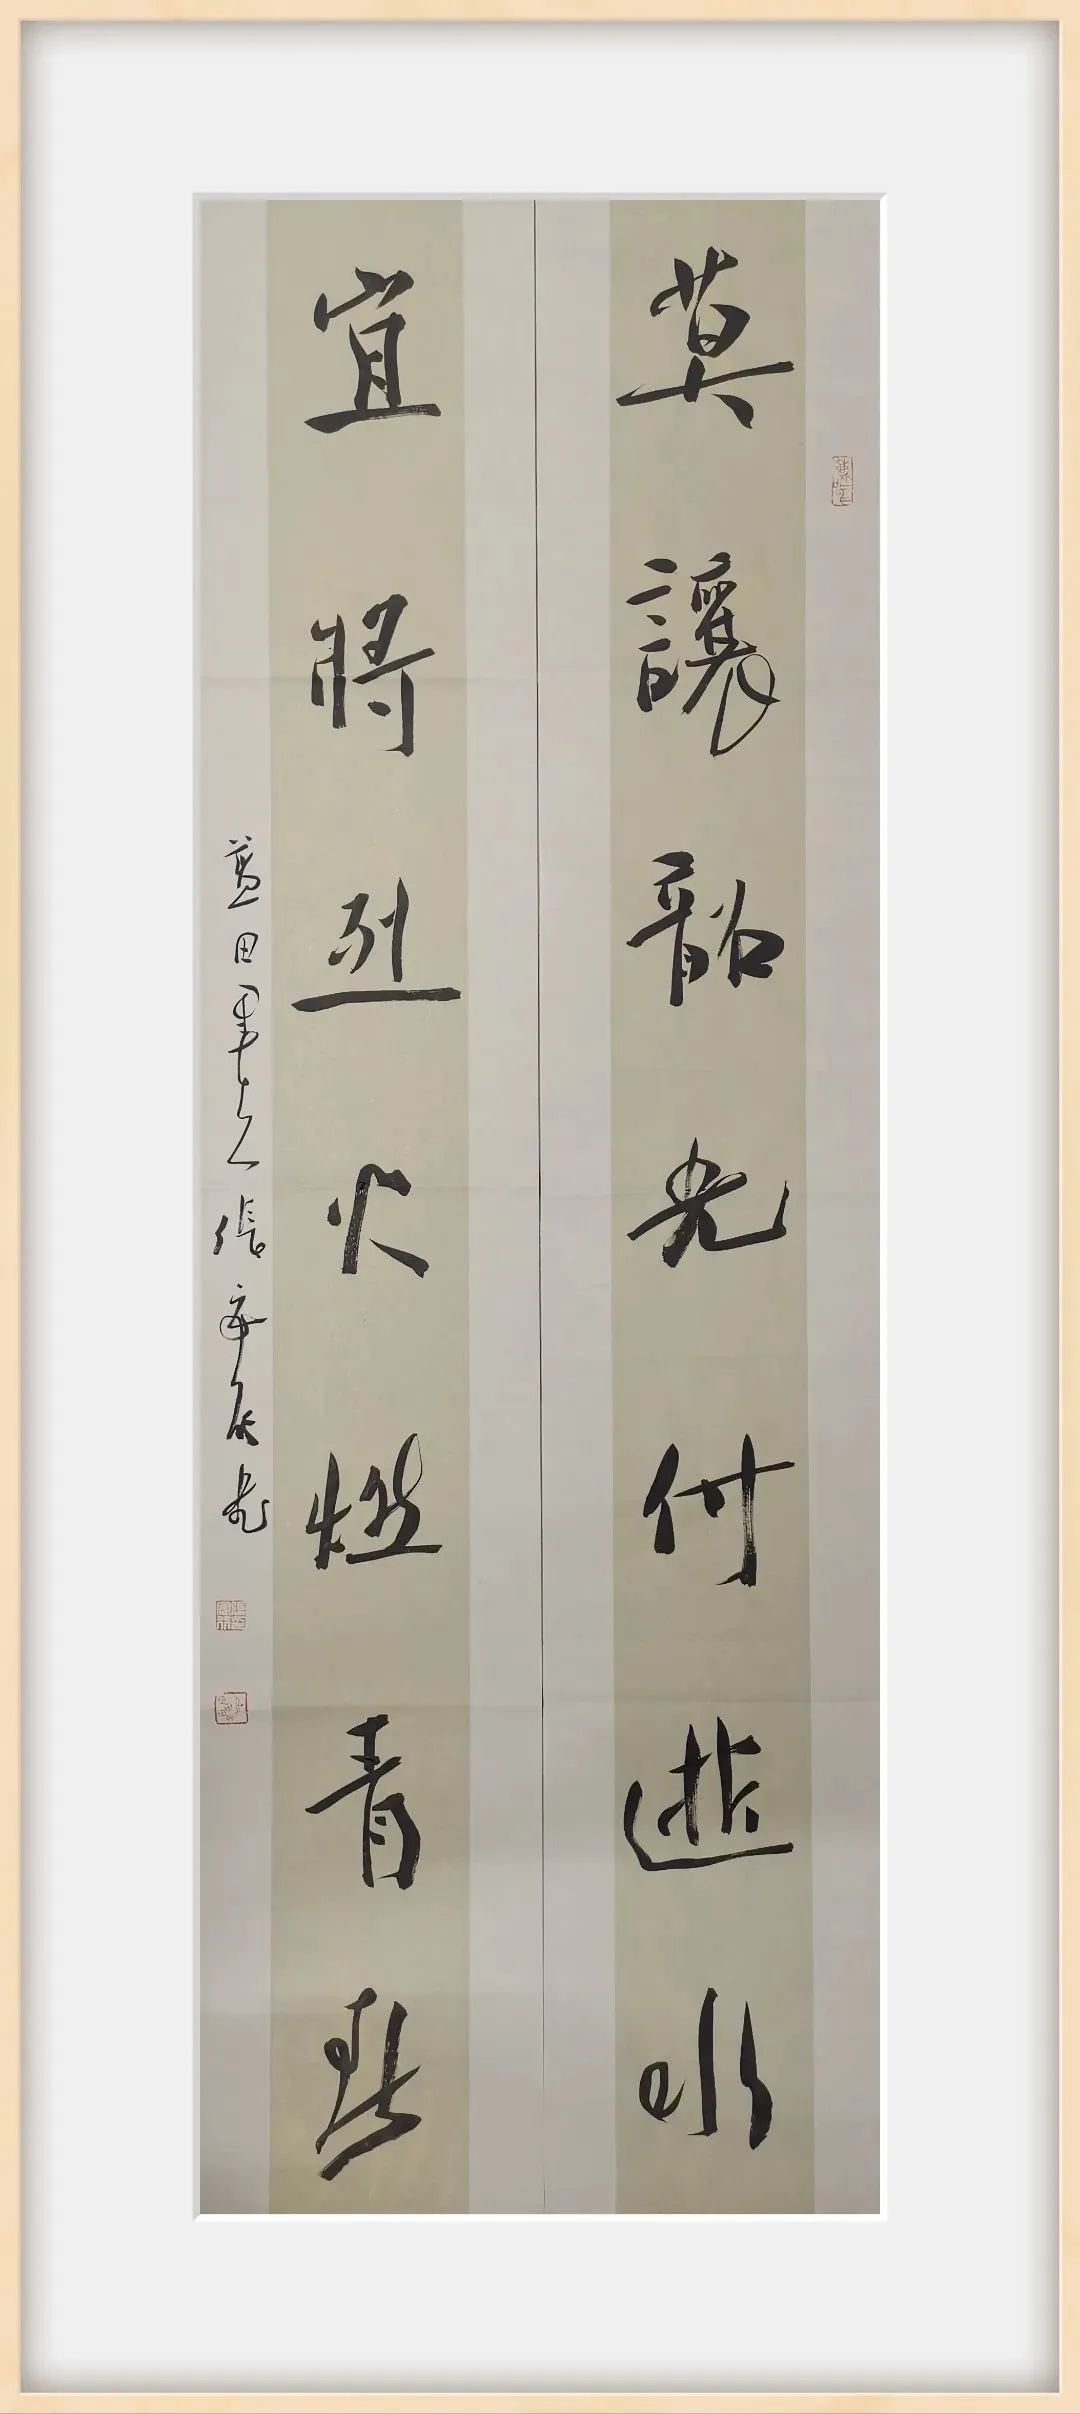 莫讓韶光付逝水
宜將烈火燃青春
藍田 張